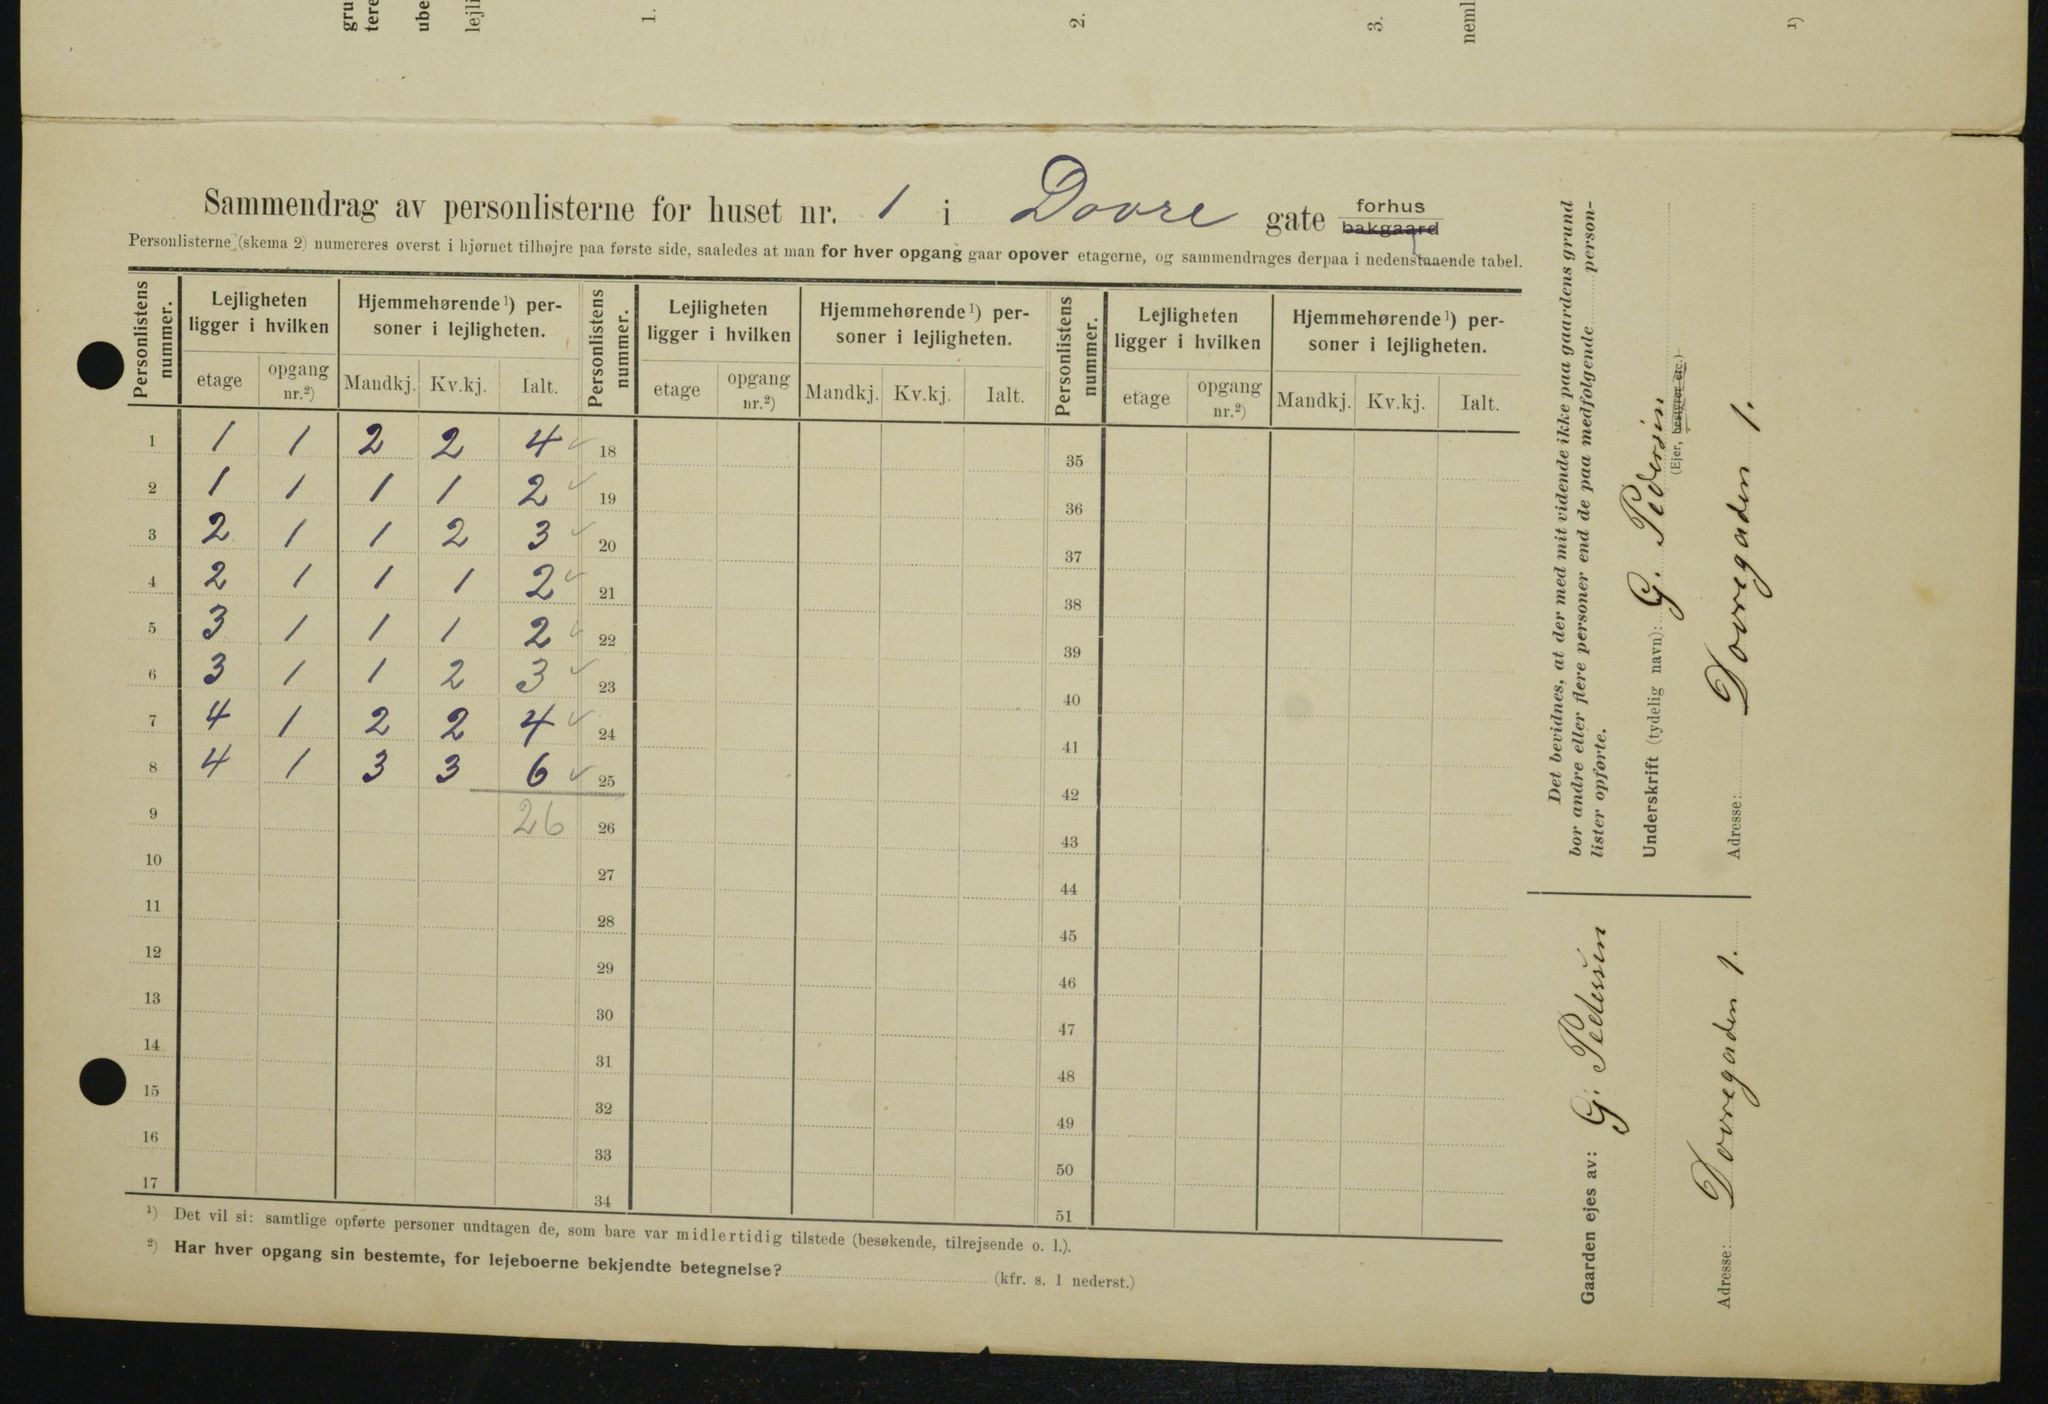 gru
tere
ube
lejli
1.
2.
3.
neml
¹)
Sammendrag av personlisterne for huset nr. 1 i Dovre gate forhus bakgaard
Personlisterne (skema 2) numereres øverst i hjørnet tilhøjre paa første side, saaledes at man for hver opgang gaar opover etagerne, og sammendrages derpaa i nedenstaaende tabel.
Personlistens nummer. | Lejligheten ligger i hvilken | Hjemmehørende¹) personer i lejligheten. | Personlistens nummer. | Lejligheten ligger i hvilken | Hjemmehørende¹) personer i lejligheten. | Personlistens nummer. | Lejligheten ligger i hvilken | Hjemmehørende¹) personer i lejligheten.
etage | opgang nr.²) | Mandkj. | Kv.kj. | Ialt. | etage | opgang nr.²) | Mandkj. | Kv.kj. | Ialt. | etage | opgang nr.²) | Mandkj. | Kv.kj. | Ialt.
1 1 1 2 2 4 ✓ 18 35
2 1 1 1 1 2 ✓ 19 36
3 2 1 1 2 3 ✓ 20 37
4 2 1 1 1 2 ✓ 21 38
5 3 1 1 1 2 ✓ 22 39
6 3 1 1 2 3 ✓ 23 40
7 4 1 2 2 4 ✓ 24 41
8 4 1 3 3 6 ✓ 25 42
9 26 26 43
10 27 44
11 28 45
12 29 46
13 30 47
14 31 48
15 32 49
16 33 50
17 34 51
¹) Det vil si: samtlige opførte personer undtagen de, som bare var midlertidig tilstede (besøkende, tilrejsende o. l.).
²) Har hver opgang sin bestemte, for lejeboerne bekjendte betegnelse? (kfr. s. 1 nederst.)
Det bevidnes, at der med mit vidende ikke paa gaardens grund
bor andre eller flere personer end de paa medfølgende person-
lister opførte.
Underskrift (tydelig navn): G. Pedersen
(Ejer, bestyrer etc.)
Adresse: Dovregaden 1.
Gaarden ejes av: G. Pedersen
Adresse: Dovregaden 1.